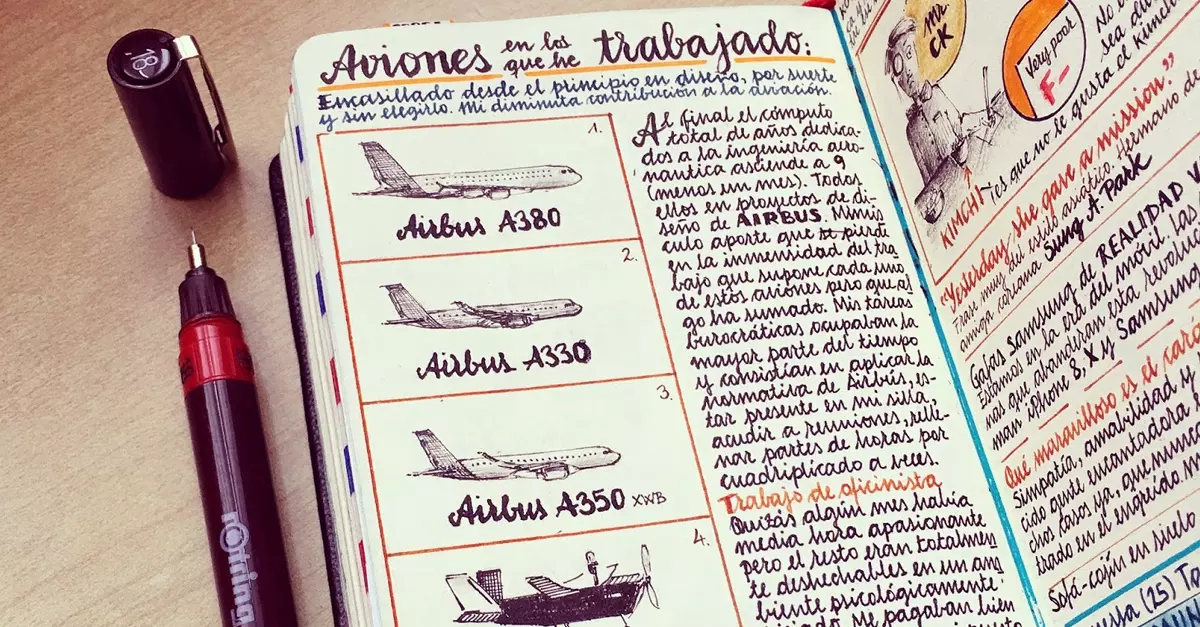 Aviones en los que he trabajado:
Encasillado desde el principio en diseño, por suerte
y sin elegirlo. Mi diminuta contribución a la aviación.
1.
Airbus A380
2.
Airbus A330
3.
Airbus A350 XWB
4.
Al final el cómputo
total de años dedica-
dos a la ingeniería aero-
nautica asciende a 9
(menos un mes). Todos
ellos en proyectos de di-
seño de AIRBUS. Minús
culo aporte que se pierde
en la inmensidad del tra
bajo que supone cada uno
de estos aviones pero que al
go ha sumado. Mis tareas
burocráticas ocupaban la
mayor parte del tiempo
y consistían en aplicar la
normativa de Airbus, es-
tar presente en mi silla,
acudir a reuniones, relle-
nar partes de horas por
cuadriplicado a veces.
Trabajo de oficinista
Quizás algún mes había
media hora apasionante
pero el resto eran totalmen
te deshechables en un am
biente psicológicamente
viciado. Me pagaban bien
Mr
CK
Very poor
F-
No
sea du
gusta el kimchi
KIMCHI Tes que no te
"Yesterday she gave a mission."
Frase muy del estilo asiático. Hermano de
amiga coreana Sung A-Park
Gafas Samsung de REALIDAD V
Estamos en la era del móvil. Las
mas que abanderan esa revolu
man iPhone 8, X y Samsung
Qué maravilloso es el carc
Simpatía, amabilidad y
cido gente encantadora
chos tasos ya, que nunca
trado en el engreído m
Sofá-cojín en suelo
nessa (25) Ta
rotring
0.18